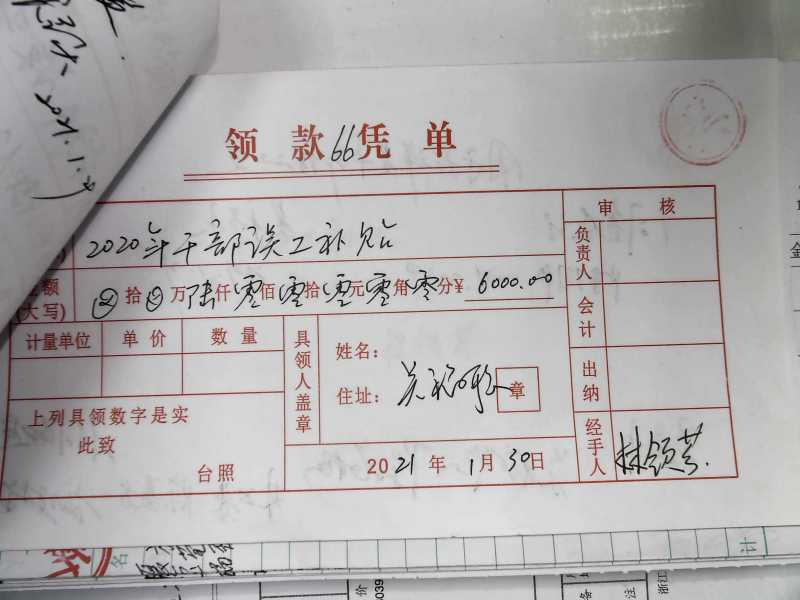 2021.1.
领款66凭单
2020年干部误工补贴
审核
负责人
额
(大写) 拾 万陆仟零佰零拾零元零角零分¥ 6000.00
计量单位 单价 数量
具领人盖章
姓名：
住址：
章
会计
出纳
上列具领数字是实
此致
台照
2021年1月30日
经手人
林领芸
名
计
备注
039
浙江
金